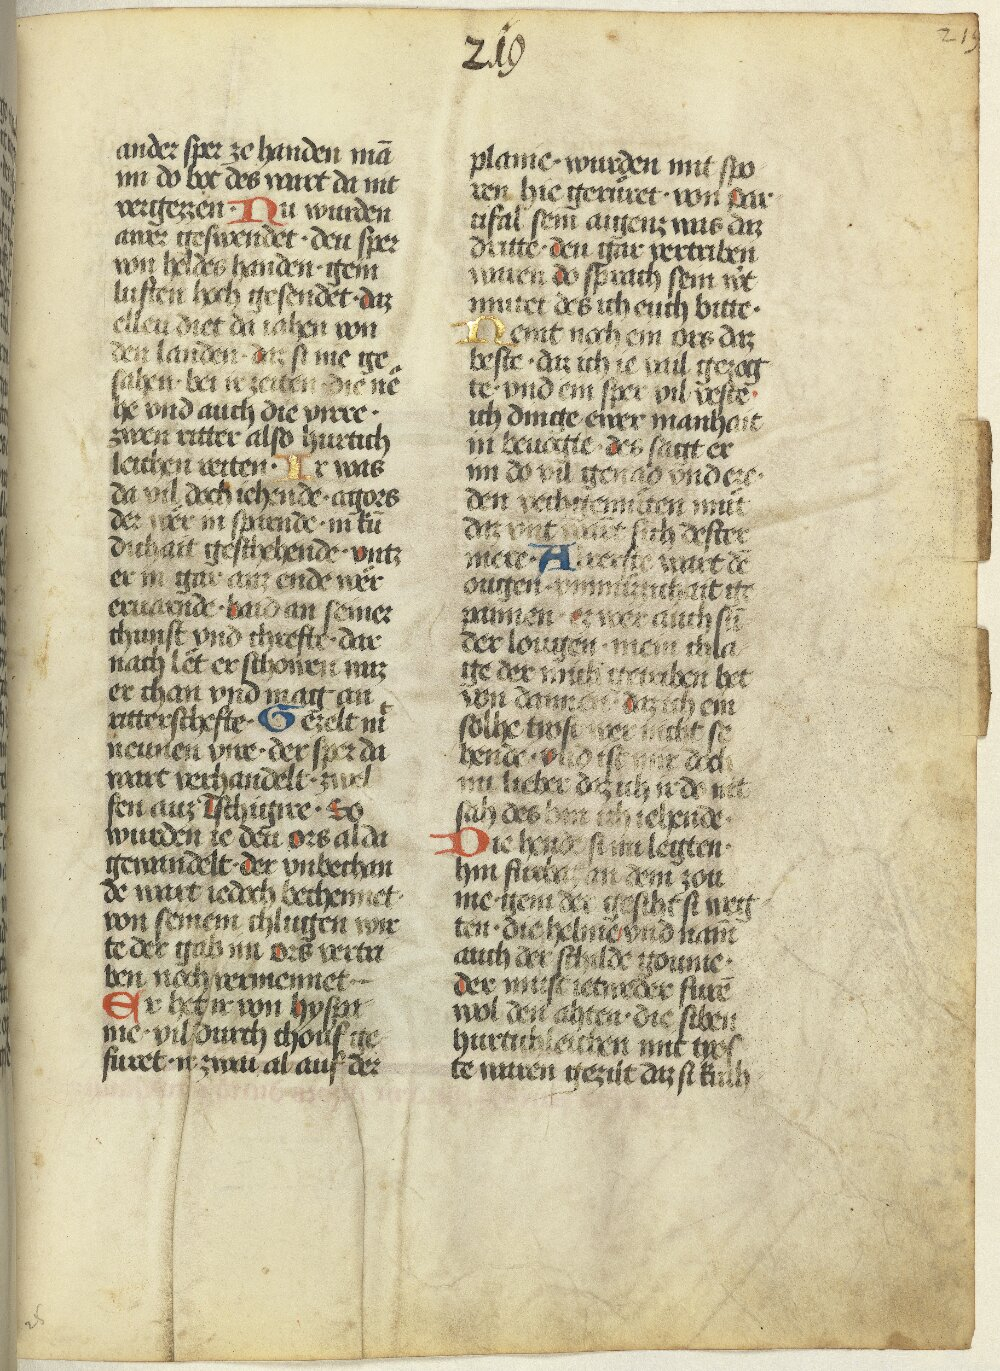 219
219
ander sper ze handen mā
im do bot des wart da nit
vergezzen · Nu wurden
aver geswendet · den sper
von heldes handen · gem
luften hoch gesendet · daz
elleu diet da iahen von
den landen · daz si nie ge
sahen · bei ir zeiten · die nē
he vnd auch die virre ·
zwen ritter also hurtich
leichen reiten · Ir was
da vil doch iehende · agors
der wer in spaende · in kū
dichait geschehende · vntz
er in gar auz ende wer
ervarende · baid an seiner
chunst vnd chrefte · dar
nach let er schowen waz
er chan vnd mag an
ritterschefte · Gezelt mit
neunen vire · der sper da
wart verhandelt · zwel
fen auz Tschugire · So
wurden ie den ors al da
gewandelt · der vnbechan
de wart iedoch bechennet
von seinem chlugen wir
te der gab im ors vertri
ben noch vermennet ·
Er het ir von hyspa
nie · vil durch chouf ge
furet · ir zwai al auf der
planie · wurden mit spo
ren hie geruret · von par
tifal sein augenz was daz
dritte · den gar vertriben
waren do sprach sein wt
muret des ich euch bitte ·
Nemt noch ein ors daz
beste · daz ich ie vail gezog
te · vnd ein sper vil veste ·
ich dinge ewer manhait
in bevogte · des sagt er
im do vil genad vnd ere ·
den mut
daz sich dester
mere · Alrerste wart dē
ougen · vnmunichait ge
numen · er wer auch sū
der lougen · mein chla
ge der mich getriben het
von dannen · daz ich ein
solhe trost wer nicht se
hende · vnd ist mir doch
nu lieber daz ich ir de nit
sah des bin ich iehende ·
Die hende si im legten ·
hin an dem zou
me · gein der gesiht si weg
ten · die helme vnd nam
auch der schilde goume ·
der must ietweder furē
wol den ahten · die siben
hurtichleichen mit tros
te waren gezilt daz si kuih